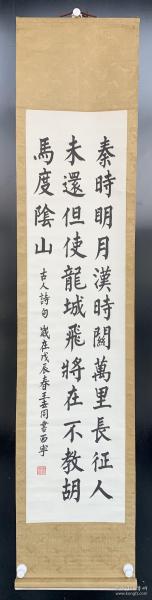 秦時明月漢時關萬里長征人
未還但使龍城飛將在不教胡
馬度陰山
古人詩句 歲在戊辰春王岳同書西寧